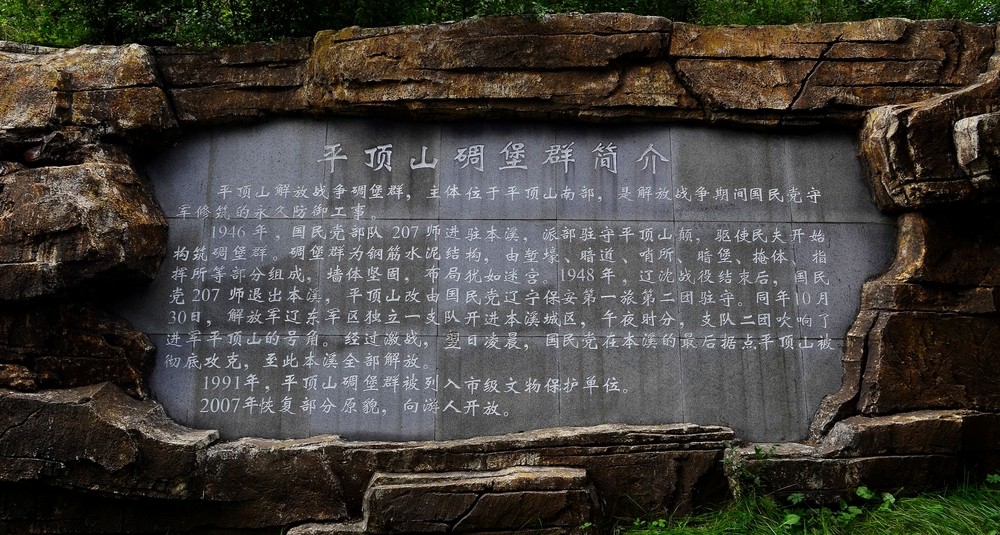 平顶山碉堡群简介
平顶山解放战争碉堡群，主体位于平顶山南部，是解放战争期间国民党守
军修筑的永久防御工事。
1946年，国民党部队207师进驻本溪，派部驻守平顶山巅，驱使民夫开始
构筑碉堡群。碉堡群为钢筋水泥结构，由堑壕、暗道、哨所、暗堡、掩体、指
挥所等部分组成，墙体坚固，布局犹如迷宫。1948年，辽沈战役结束后，国民
党207师退出本溪，平顶山改由国民党辽宁保安第一旅第二团驻守。同年10月
30日，解放军辽东军区独立一支队开进本溪城区，午夜时分，支队二团吹响了
进军平顶山的号角。经过激战，翌日凌晨，国民党在本溪的最后据点平顶山被
彻底攻克，至此本溪全部解放。
1991年，平顶山碉堡群被列入市级文物保护单位。
2007年恢复部分原貌，向游人开放。